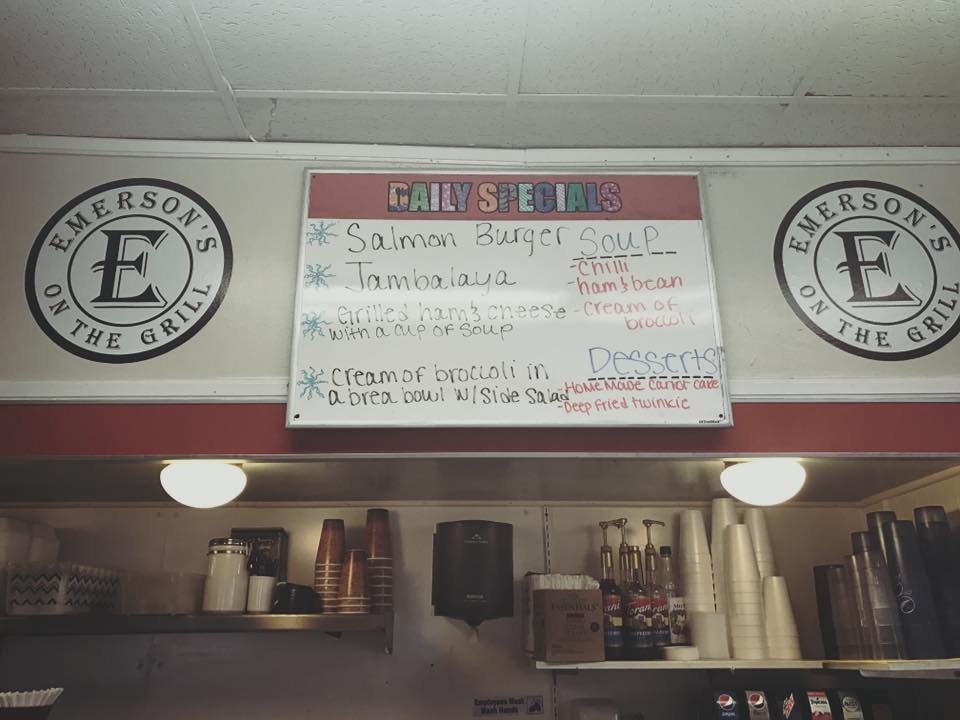 DAILY SPECIALS
EMERSON'S
E
ON THE GRILL
Salmon Burger
Jambalaya
Grilled ham & cheese
with a cup of soup
cream of broccoli in
a brea bowl w/ side Salad
Soup
-Chilli
-ham & bean
-Cream of
broccoli
Desserts
-HomeMade Carior cake
-Deep fried twinkie
EMERSON'S
E
ON THE GRILL
Torani
ESSENTIALS
Employees Must
Wash Hands
pepsi